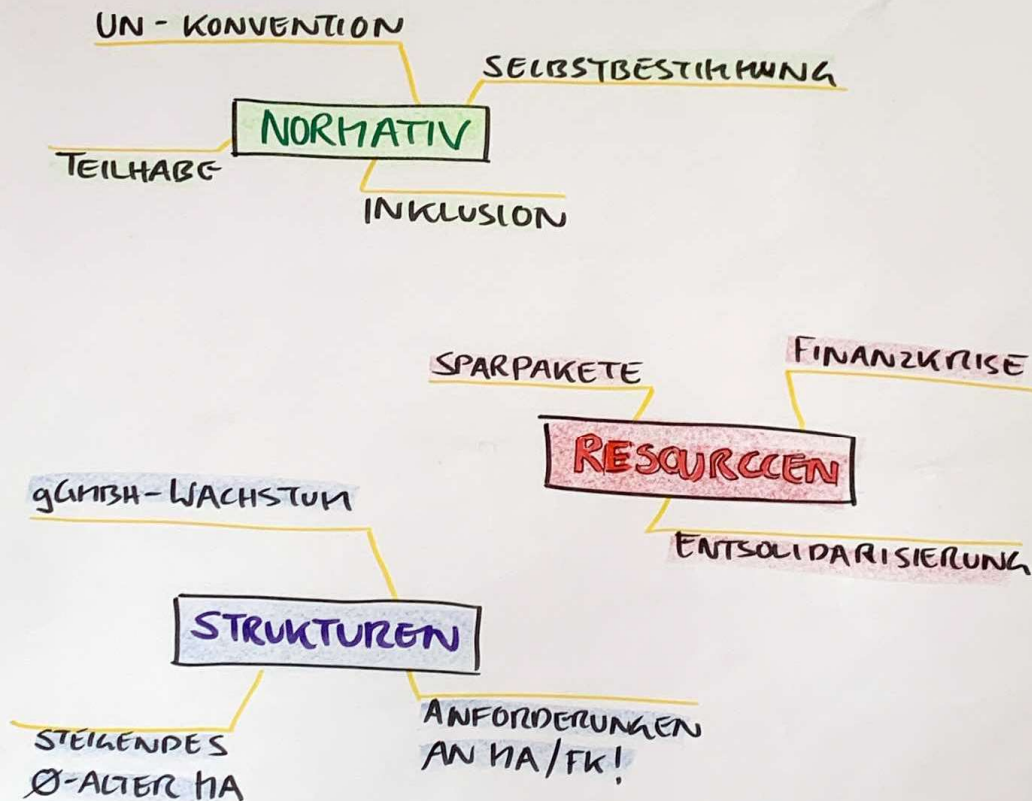 UN - KONVENTION
SELBSTBESTIMMUNG
NORMATIV
TEILHABE
INKLUSION
SPARPAKETE
FINANZKRISE
RESOURCCEN
ENTSOLIDARISIERUNG
gGMBH-WACHSTUM
STRUKTUREN
STEIGENDES
Ø-ALTER MA
ANFORDERUNGEN
AN MA/FK!